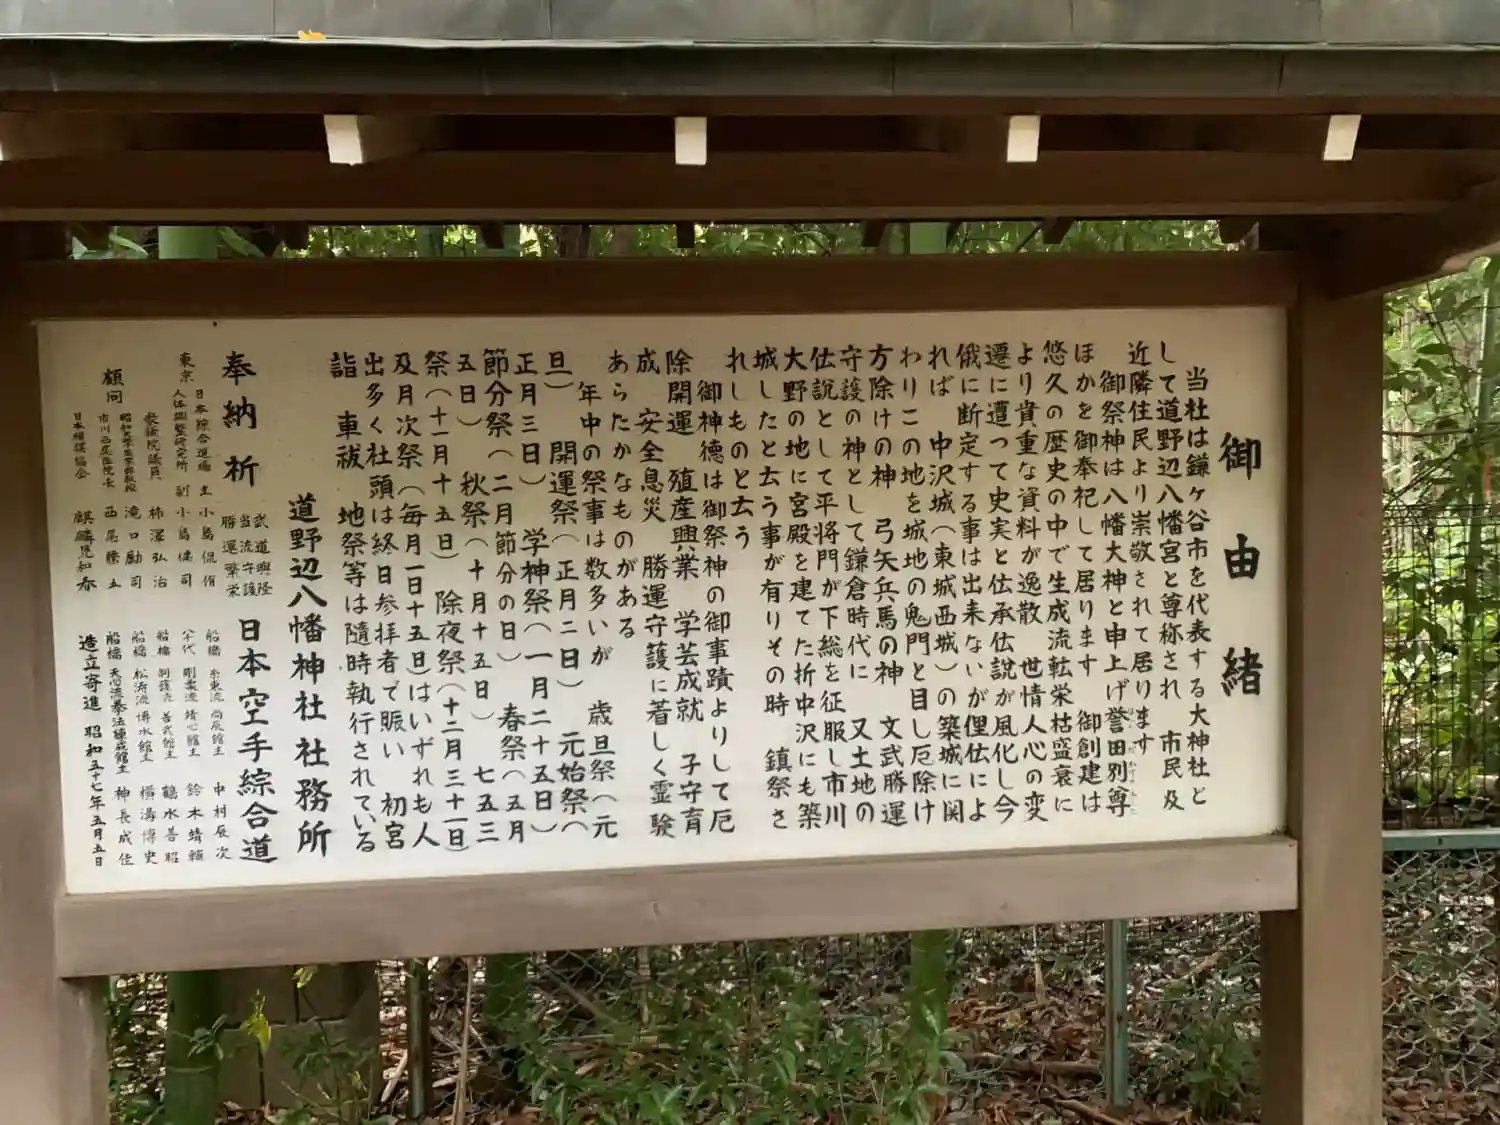 御由緒
当社は鎌ヶ谷市を代表する大神社と
して道野辺八幡宮と尊称され 市民及
近隣住民より崇敬されて居ります
御祭神は八幡大神と申上げ誉田別尊
ほかを御奉祀して居ります 御創建は
悠久の歴史の中で生成流転栄枯盛衰に
より貴重な資料が逸散 世情人心の変
遷に遭つて史実と伝承伝説が風化し今
俄に断定する事は出来ないが俚伝によ
れば 中沢城(東城西城)の築城に関
わりこの地を城地の鬼門と目し厄除け
方除けの神 弓矢兵馬の神 文武勝運
守護の神として鎌倉時代に 又土地の
伝説として平将門が下総を征服し市川
大野の地に宮殿を建てた折中沢にも築
城したと云う事が有りその時 鎮祭さ
れしものと云う
御神徳は御祭神の御事蹟よりして厄
除開運 殖産興業 学芸成就 子守育
成 安全息災 勝運守護に著しく霊験
あらたかなものがある
年中の祭事は数多いが 歳旦祭(元
旦) 開運祭(正月二日) 元始祭(
正月三日) 学神祭(一月二十五日)
節分祭(二月節分の日) 春祭(五月
五日) 秋祭(十月十五日) 七五三
祭(十一月十五日)除夜祭(十二月三十一日)
及月次祭(毎月一日十五日)はいずれも人
出多く社頭は終日参拝者で賑い 初宮
詣 車祓 地祭等は随時執行されている
道野辺八幡神社社務所
奉納 祈 武道興隆 当流守護 勝運繁栄 日本空手綜合道
東京 日本綜合道場 主 小島侃侑
人体調整研究所 副 小島儀司
参議院議員 柿澤弘治
顧問 滝口勲司
市川西尾医院長 西尾勝五
日本相撲協会 麒麟児和春
船橋 糸東流尚辰館主 中村辰次
八千代 剛柔流靖心館主 鈴木靖輔
船橋 善武館主 鶴水善昭
船橋 松涛流博水館主 横溝博史
船橋 天心流拳法練成館主 神長成佳
造立寄進 昭和五十七年五月五日